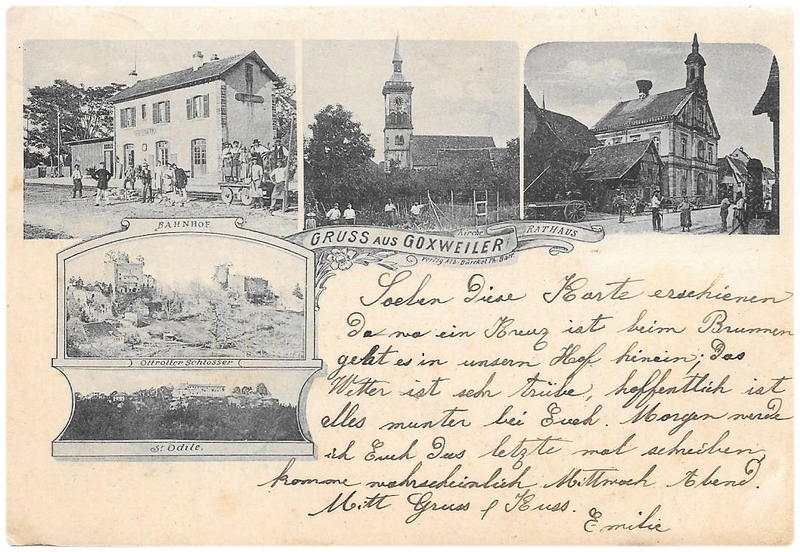 BAHNHOF
Kirche
RATHAUS
GRUSS AUS GOXWEILER
Verlag Alb. Bürckel Ph. Barr.
Ottrotter Schlösser
St Odile.
Soeben Diese Karte erschienen
Da wo ein Kreuz ist beim Brunnen
geht es in unsern Hof hinein; Das
Wetter ist sehr trübe, hoffentlich ist
alles munter bei Euch. Morgen werde
ich Euch Das letzte mal schreiben,
komme wahrscheinlich Mittwoch Abend.
Mitt Gruss & Kuss.
Emilie